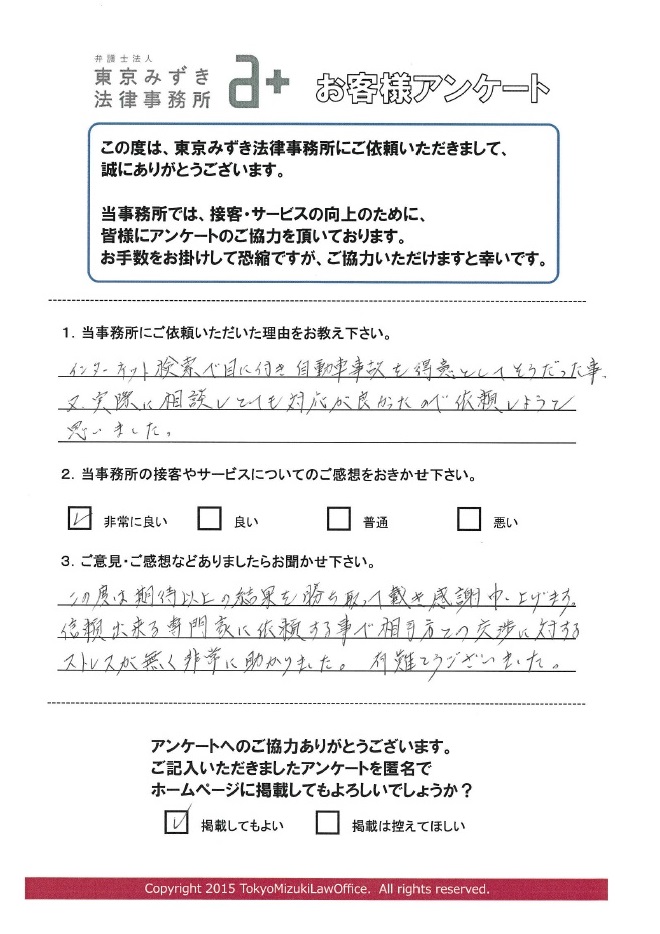 弁護士法人
東京みずき
法律事務所
a+
お客様アンケート
この度は、東京みずき法律事務所にご依頼いただきまして、
誠にありがとうございます。
当事務所では、接客・サービスの向上のために、
皆様にアンケートのご協力を頂いております。
お手数をお掛けして恐縮ですが、ご協力いただけますと幸いです。
1. 当事務所にご依頼いただいた理由をお教え下さい。
インターネット検索で目に付き自動車事故を得意としてそうだった事、
又、実際に相談しとても対応が良かったので依頼しようと
思いました。
2. 当事務所の接客やサービスについてのご感想をおきかせ下さい。
非常に良い 良い 普通 悪い
3. ご意見・ご感想などありましたらお聞かせ下さい。
この度は期待以上の結果を勝ち取って戴き感謝申し上げます。
信頼出来る専門家に依頼する事で相手方との交渉に対する
ストレスが無く非常に助かりました。 有難とうございました。
アンケートへのご協力ありがとうございます。
ご記入いただきましたアンケートを匿名で
ホームページに掲載してもよろしいでしょうか？
掲載してもよい 掲載は控えてほしい
Copyright 2015 TokyoMizukiLawOffice. All rights reserved.